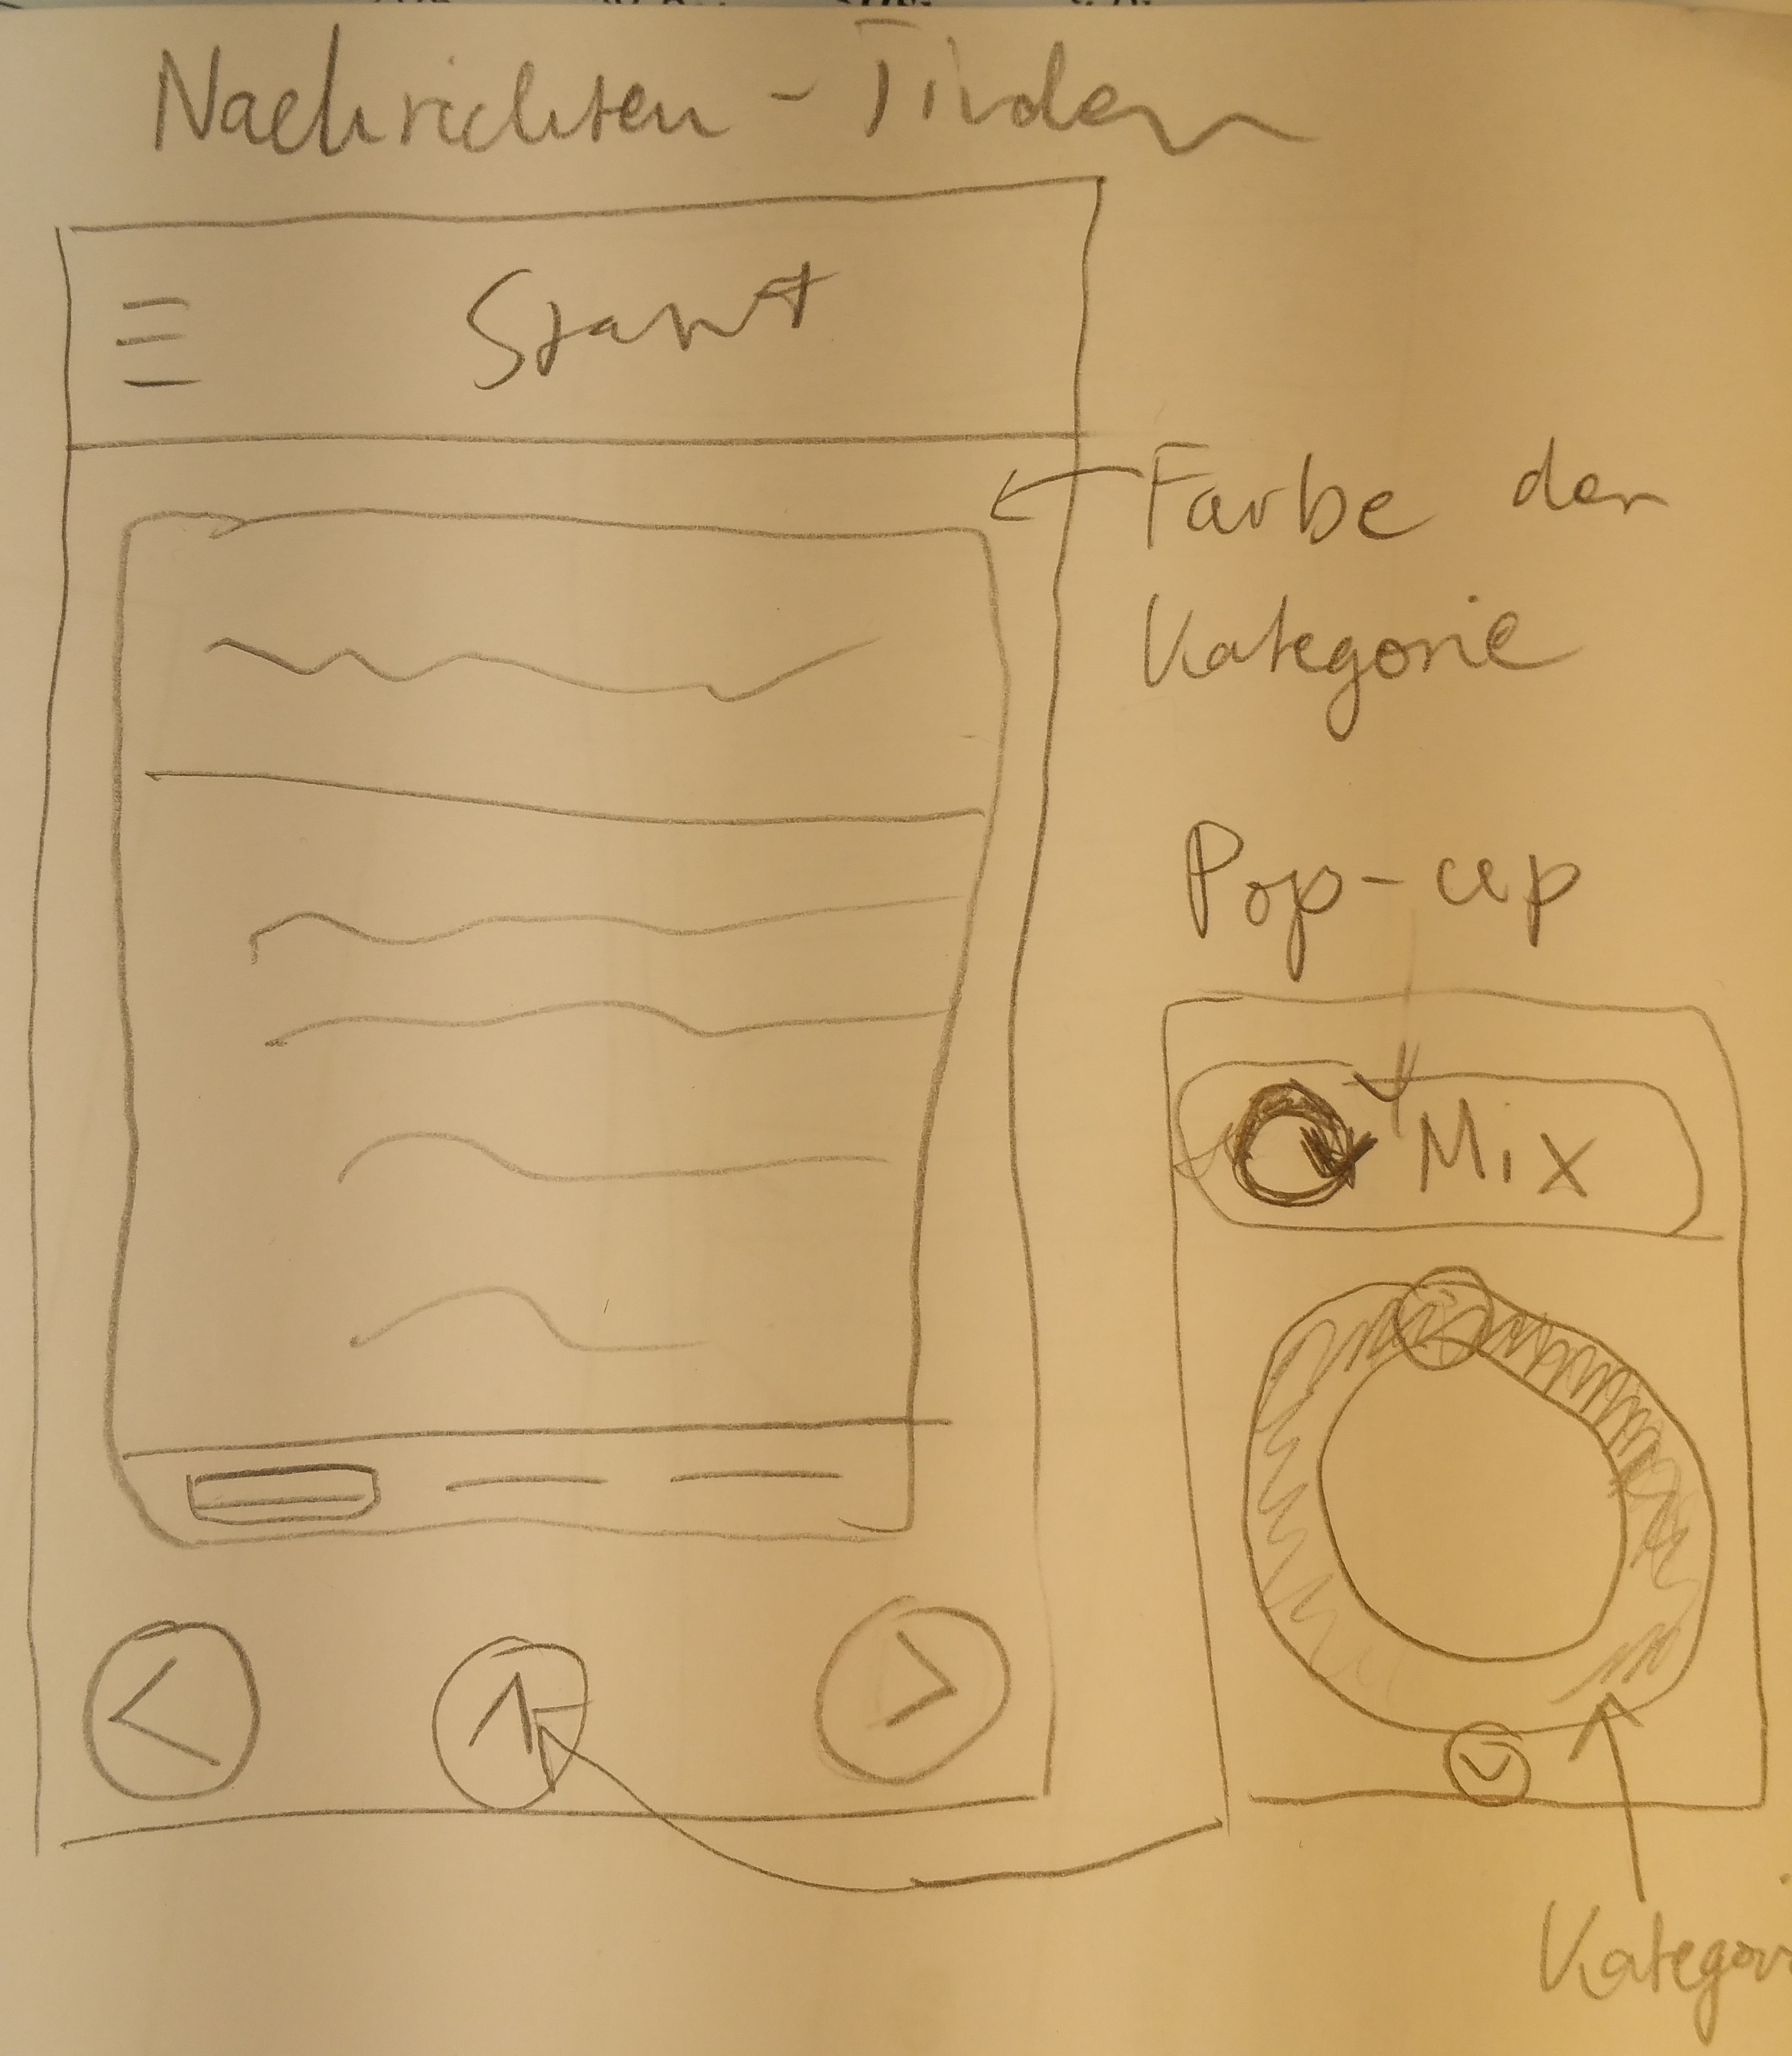 Nachrichten - Tinder
Start
Farbe der
Kategorie
Pop-up
Mix
Kategori